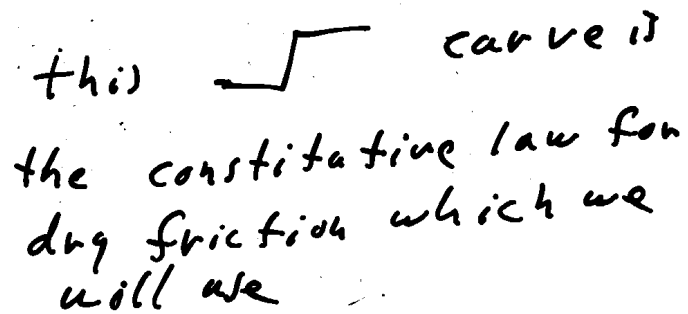 this curve is
the constitutive law for
dry friction which we
will use